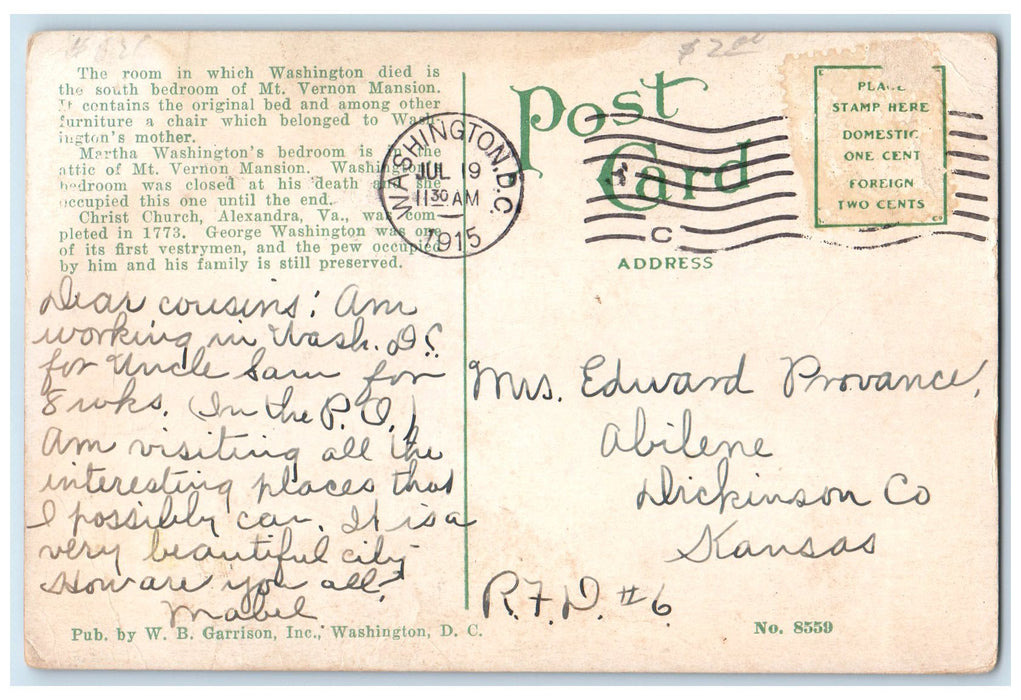 $2.00
The room in which Washington died is
the south bedroom of Mt. Vernon Mansion.
It contains the original bed and among other
furniture a chair which belonged to Wash-
ington's mother.
Martha Washington's bedroom is in the
attic of Mt. Vernon Mansion. Washington's
bedroom was closed at his death and she
occupied this one until the end.
Christ Church, Alexandra, Va., was com-
pleted in 1773. George Washington was one
of its first vestrymen, and the pew occupied
by him and his family is still preserved.
Dear cousins: Am
working in Wash. D.C.
for Uncle Sam for
8 wks. (In the P.O.)
Am visiting all the
interesting places that
I possibly can. It is a
very beautiful city
How are you all?
Mabel
Pub. by W. B. Garrison, Inc., Washington, D. C.
WASHINGTON, D.C.
JUL 19
11 30 AM
1915
C
Post
Card
ADDRESS
PLACE
STAMP HERE
DOMESTIC
ONE CENT
FOREIGN
TWO CENTS
Mrs. Edward Provance,
Abilene
Dickinson Co
Kansas
R.F.D. #6
No. 8559